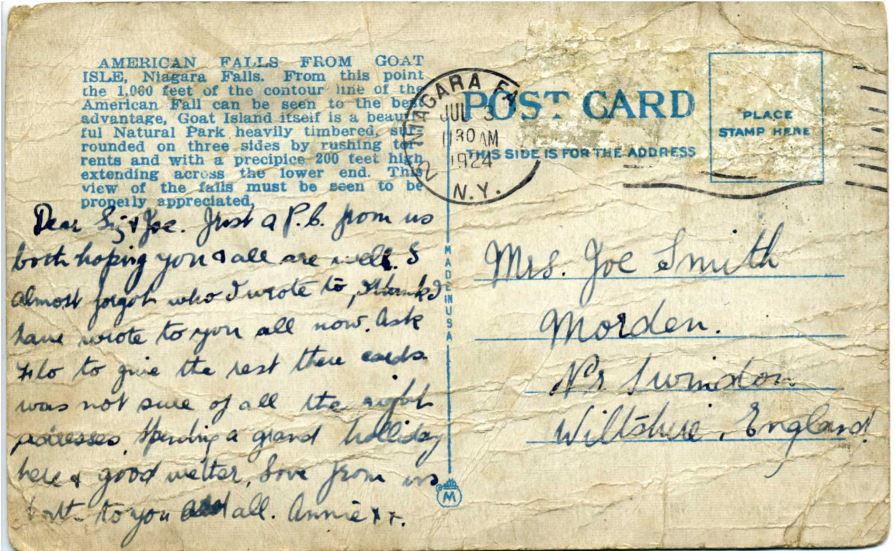 AMERICAN FALLS FROM GOAT
ISLE, Niagara Falls. From this point
the 1,060 feet of the contour line of the
American Fall can be seen to the best
advantage, Goat Island itself is a beauti-
ful Natural Park heavily timbered, sur-
rounded on three sides by rushing tor-
rents and with a precipice 200 feet high
extending across the lower end. This
view of the falls must be seen to be
properly appreciated.
NIAGARA FA
JUL 3
30 AM
1924
N.Y.
POST CARD
THIS SIDE IS FOR THE ADDRESS
PLACE
STAMP HERE
Dear & Joe. Just a P.C. from us
both hoping you & all are well. I
almost forgot who I wrote to, I think I
have wrote to you all now. Ask
Flo to give the rest there cards
was not sure of all the right
adresses. Spending a grand holliday
here & good wetter, Love from us
both to you and all. Annie xx.
MADE IN USA
M
Mrs. Joe Smith
Morden.
Nr Swindon
Wiltshire, England.